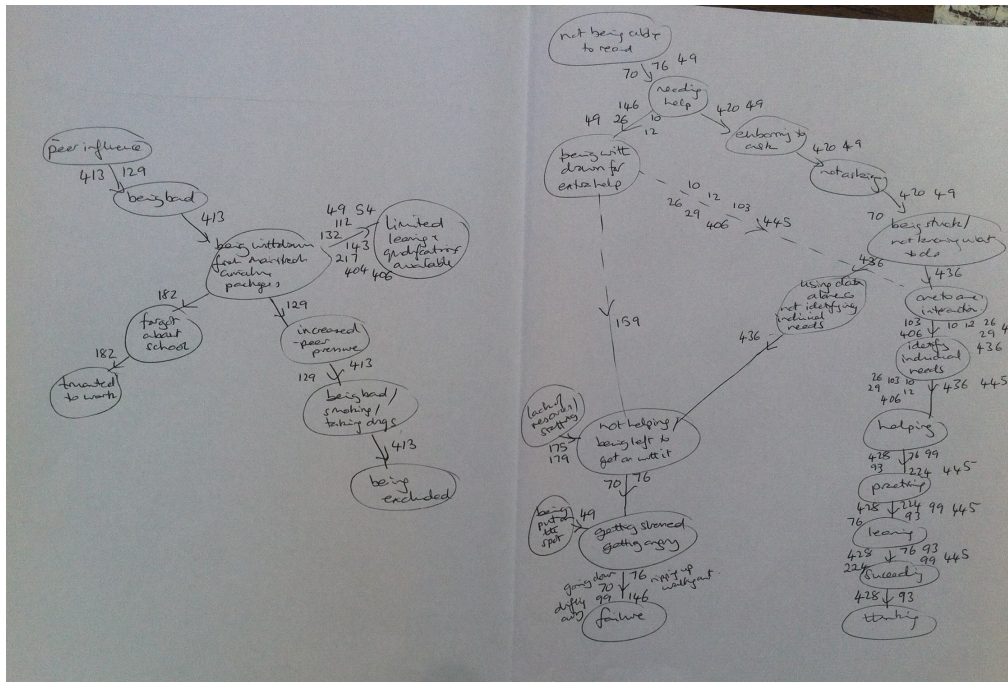 peer influence
413 129
being bad
413
being withdrawn
from mainstream
curriculum
packages
49 54
112
132
143
217
404 406
limited
learning +
qualifications
available
182
forgot
about
school
182
truanted
to work
129
increased
peer
pressure
413
129
being bad/
smoking/
taking drugs
413
being
excluded
not being able
to read
70 76 49
needing
help
146
49 26 10
12
420 49
to
ask
420 49
not asking
420 49
70
being stuck/
not knowing what
to do
being with
drawn for
extra help
10 12 103
26 29 406
445
159
436
using data
alone
not identifying
individual
needs
436
436
one to one
interaction
103 10 12 26
406 29
436
identify
individual
needs
26 103 10
29 12
406
436 445
helping
428 76 99
93 224 445
practising
428 224 99 445
76 93
learning
428 76 93
224 99 445
succeeding
428 93
thinking
lack of
resources/
staffing
175
179
not helping/
being left to
get on with it
70 76
being
put on
the
spot
49
getting
getting angry
going down
70
99
76
146
ripping up
drifting
away
failure